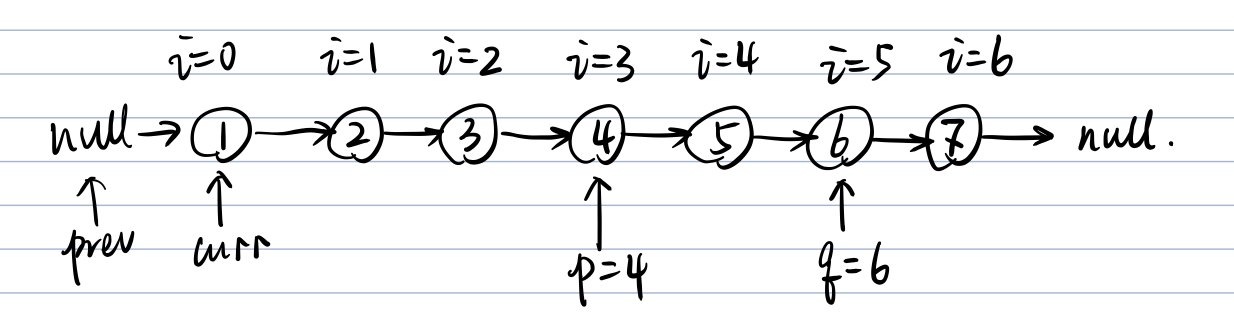 i=0 i=1 i=2 i=3 i=4 i=5 i=6
null → 1 → 2 → 3 → 4 → 5 → 6 → 7 → null.
prev curr p=4 q=6